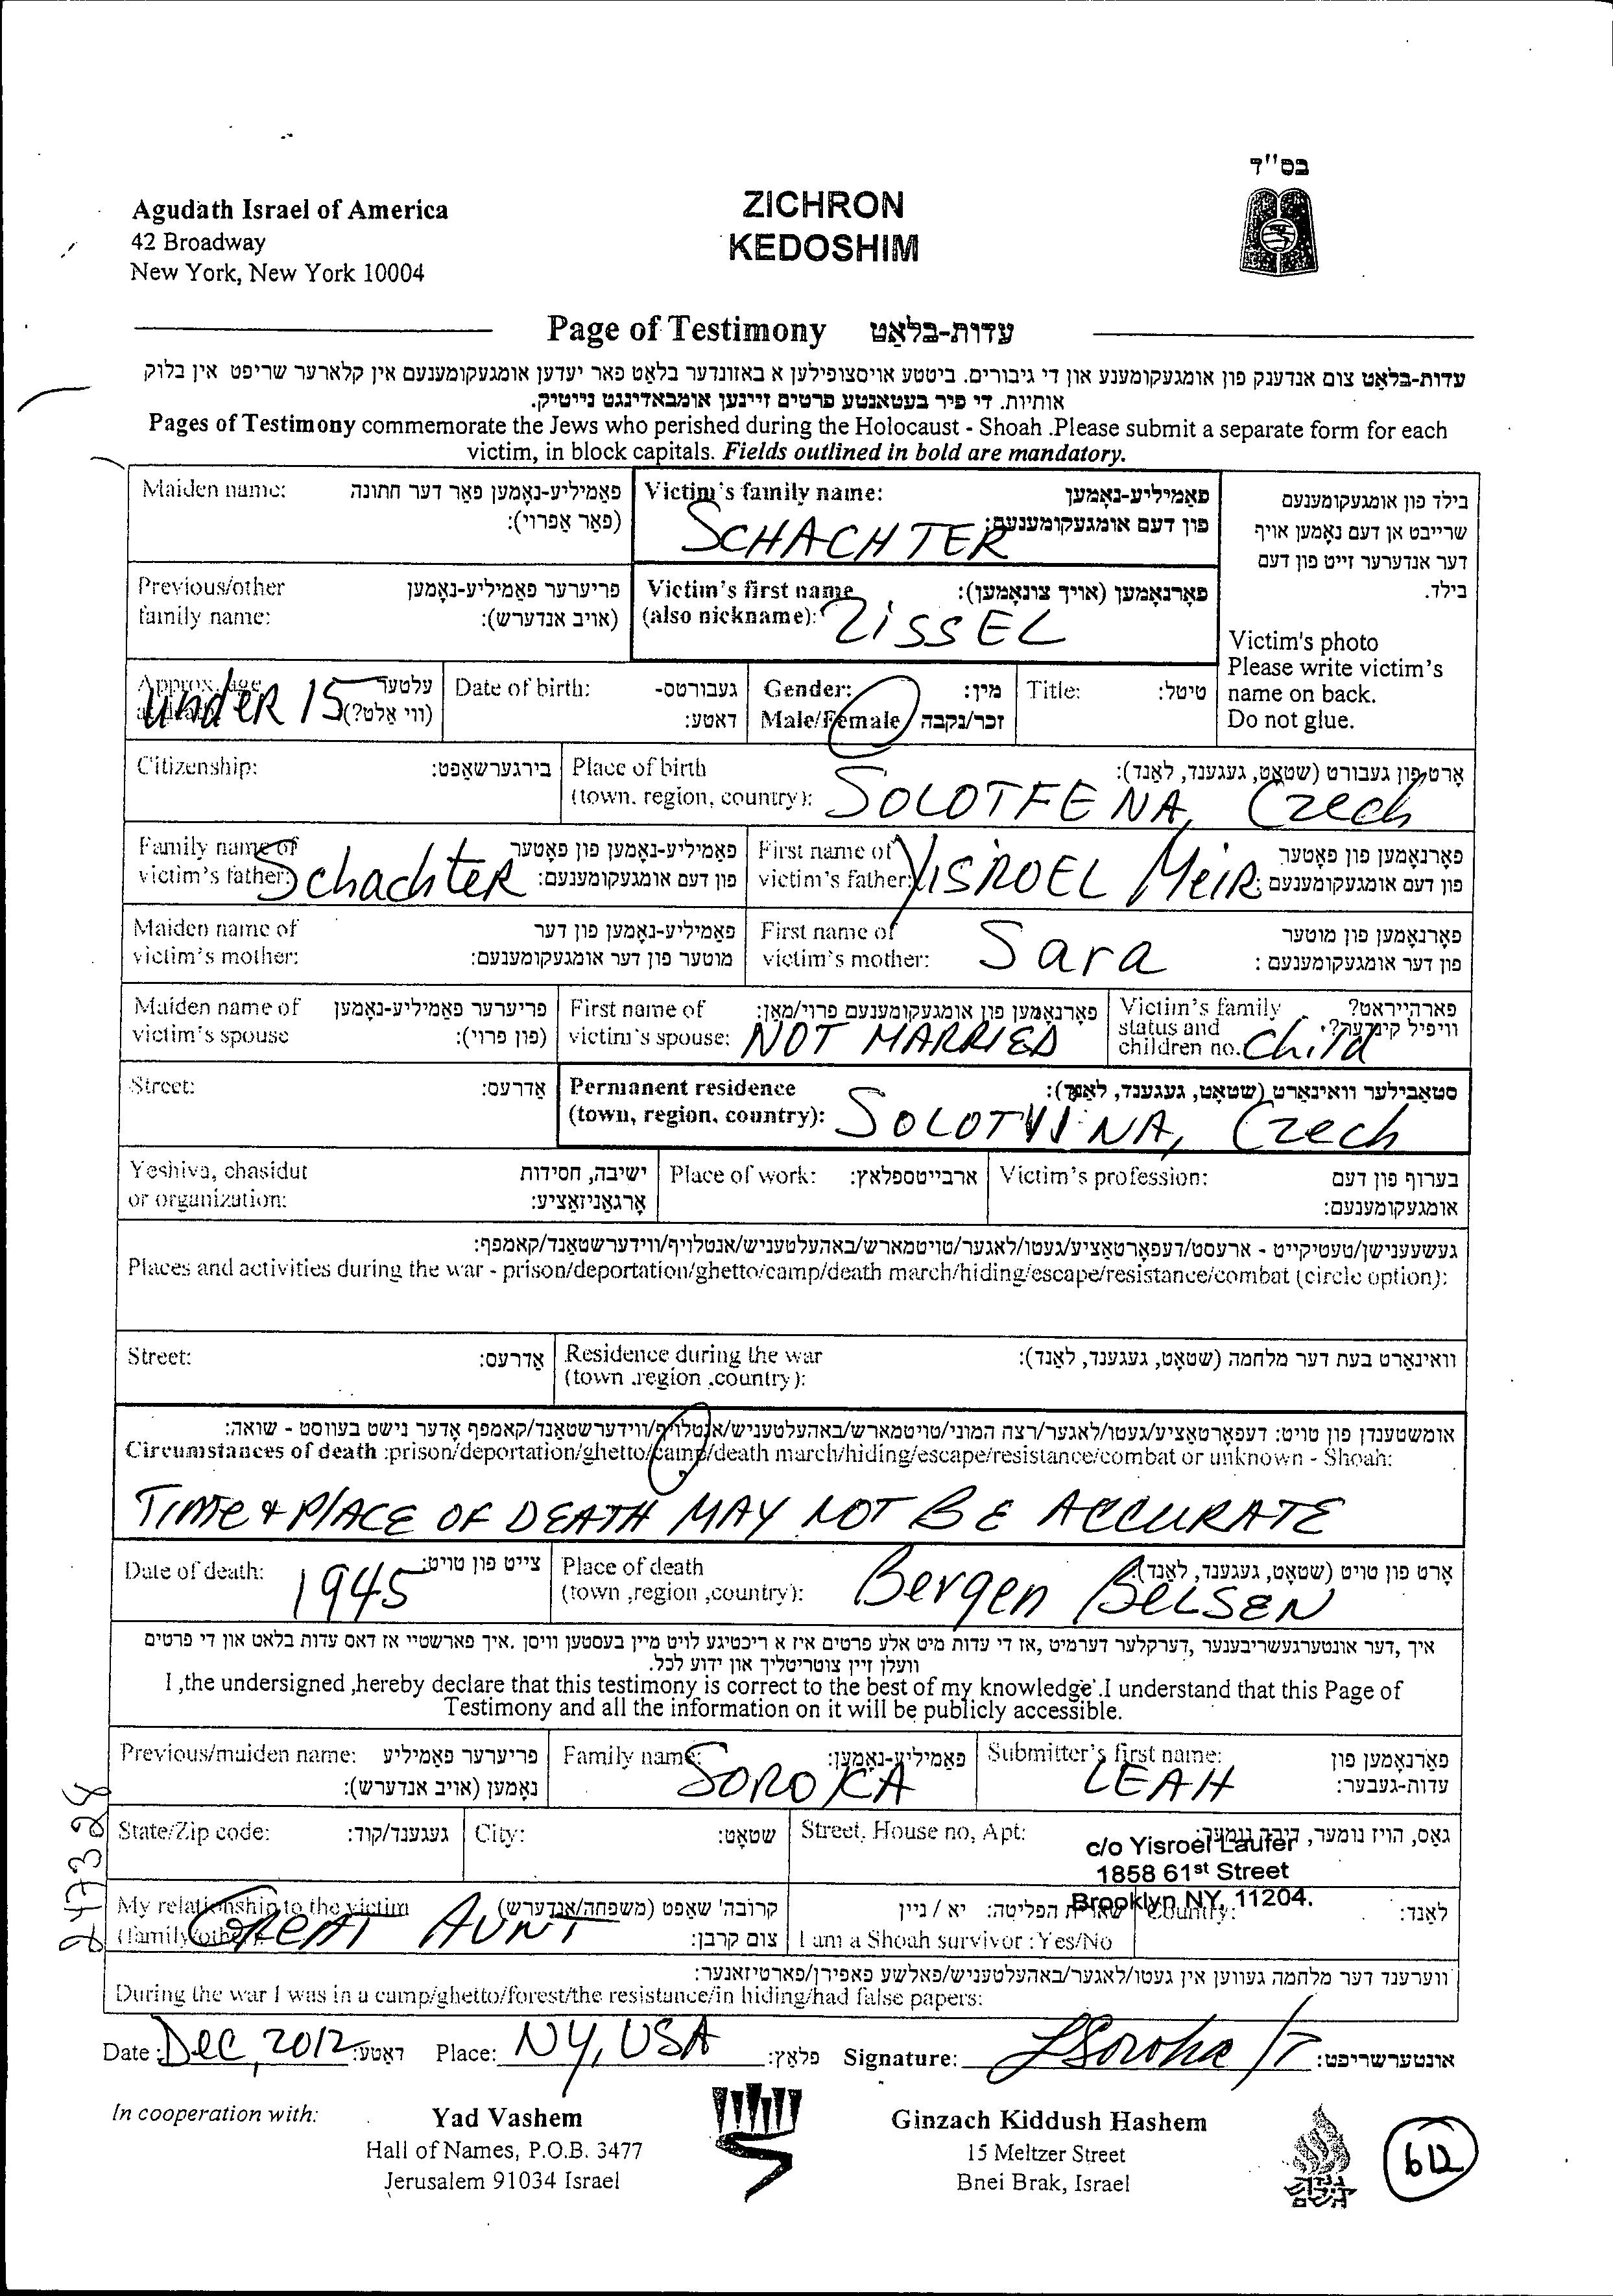 בס"ד
Agudath Israel of America
42 Broadway
New York, New York 10004
ZICHRON
KEDOSHIM
Page of Testimony עדות-בלאַט
עדות-בלאַט צום אנדענק פון אומגעקומענע און די גיבורים. ביטטע אויסצופילען א באזונדער בלאַט פאר יעדען אומגעקומענעם אין קלארער שריפט אין בלוק
אותיות. די פיר בעטאָנטע פרטים זיינען אומבאדינגט נייטיק.
Pages of Testimony commemorate the Jews who perished during the Holocaust - Shoah .Please submit a separate form for each
victim, in block capitals. Fields outlined in bold are mandatory.
Maiden name: פאַמיליע-נאָמען פאַר דער חתונה
(פאַר אַפרוי):
Victim's family name: פאַמיליע-נאָמען
פון דעם אומגעקומענעם:
SCHACHTER
בילד פון אומגעקומענעם
שרייבט אן דעם נאָמען אויף
דער אנדערער זייט פון דעם
בילד.
Victim's photo
Please write victim's
name on back.
Do not glue.
Previous/other פריערער פאַמיליע-נאָמען
family name: (אויב אנדערש):
Victim's first name פאָרנאָמען (אויך צונאָמען):
(also nickname): ZISSEL
Approx. age עלטער
(ווי אלט?)
UndER 15
Date of birth: געבורטס-
דאטע:
Gender: מין:
Male/Female זכר/נקבה
Title: טיטל:
Citizenship: בירגערשאַפט:
Place of birth אָרט פון געבורט (שטאָט, געגענד, לאַנד):
(town. region, country): SOLOTFENA, Czech
Family name of פאַמיליע-נאָמען פון פאָטער
victim's father: פון דעם אומגעקומענעם:
SchachtER
First name of פאָרנאָמען פון פאָטער
victim's father: פון דעם אומגעקומענעם:
YISROEL MeiR
Maiden name of פאַמיליע-נאָמען פון דער
victim's mother: מוטער פון דער אומגעקומענעם:
First name of פאָרנאָמען פון מוטער
victim's mother: פון דער אומגעקומענעם:
Sara
Maiden name of פריערער פאַמיליע-נאָמען
victim's spouse (פון פרוי):
First name of פאָרנאָמען פון אומגעקומענעם פרוי/מאַן:
victim's spouse: NOT MARRIED
Victim's family פארהייראט?
status and וויפיל קינדער?
children no. Child
Street: אַדרעס:
Permanent residence סטאַבילער וואוינאָרט (שטאָט, געגענד, לאַנד):
(town, region, country): SOLOTVINA, Czech
Yeshiva, chasidut ישיבה, חסידות
or organization: אָרגאַניזאַציע:
Place of work: ארבייטספלאץ:
Victim's profession: בערוף פון דעם
אומגעקומענעם:
געשעענישן/טעטיקייט - ארעסט/דעפּאָרטאַציע/געטו/לאגער/טויטמארש/באהעלטעניש/אנטלויף/ווידערשטאַנד/קאמפף:
Places and activities during the war - prison/deportation/ghetto/camp/death march/hiding/escape/resistance/combat (circle option):
Street: אַדרעס:
Residence during the war וואוינאָרט בעת דער מלחמה (שטאָט, געגענד, לאַנד):
(town .region .country):
אומשטענדן פון טויט: דעפּאָרטאַציע/געטו/לאגער/רצח המוני/טויטמארש/באהעלטעניש/אנטלויף/ווידערשטאנד/קאמפף אָדער נישט בעוווסט - שואה:
Circumstances of death :prison/deportation/ghetto/camp/death march/hiding/escape/resistance/combat or unknown - Shoah:
Time & PlACE OF DEATH MAY NOT BE ACCURATE
Date of death: צייט פון טויט:
1945
Place of death אָרט פון טויט (שטאָט, געגענד, לאַנד):
(town ,region ,country): Bergen BELSEN
איך ,דער אונטערגעשריבענער ,דערקלער דערמיט ,אז די עדות מיט אלע פרטים איז א ריכטיגע לויט מיין בעסטען וויסן .איך פארשטיי אז דאס עדות בלאט און די פרטים
וועלן זיין צוטריטליך און ידוע לכל.
I ,the undersigned ,hereby declare that this testimony is correct to the best of my knowledge .I understand that this Page of
Testimony and all the information on it will be publicly accessible.
Previous/maiden name: פריערער פאַמיליע
נאָמען (אויב אנדערש):
Family name: פאַמיליע-נאָמען:
SOROKA
Submitter's first name: פאָרנאָמען פון
עדות-געבער:
LEAH
State/Zip code: געגענד/קוד:
City: שטאָט:
Street, House no, Apt: גאַס, הויז נומער, דירה נומער:
c/o Yisroel Laufer
1858 61st Street
Brooklyn NY, 11204.
My relationship to the victim קרובה'שאַפט (משפחה/אנדערש)
(family/other) צום קרבן:
GREAT AUNT
שארית הפליטה: יא / ניין
I am a Shoah survivor : Yes/No
Country: לאַנד:
ווערענד דער מלחמה געווען אין געטו/לאגער/באהעלטעניש/פאלשע פאפירן/פארטיזאנער:
During the war I was in a camp/ghetto/forest/the resistance/in hiding/had false papers:
Date: Dec, 2012 דאַטע: Place: NY, USA פלאַץ: Signature: LSoroka אונטערשריפט:
In cooperation with:
Yad Vashem
Hall of Names, P.O.B. 3477
Jerusalem 91034 Israel
Ginzach Kiddush Hashem
15 Meltzer Street
Bnei Brak, Israel